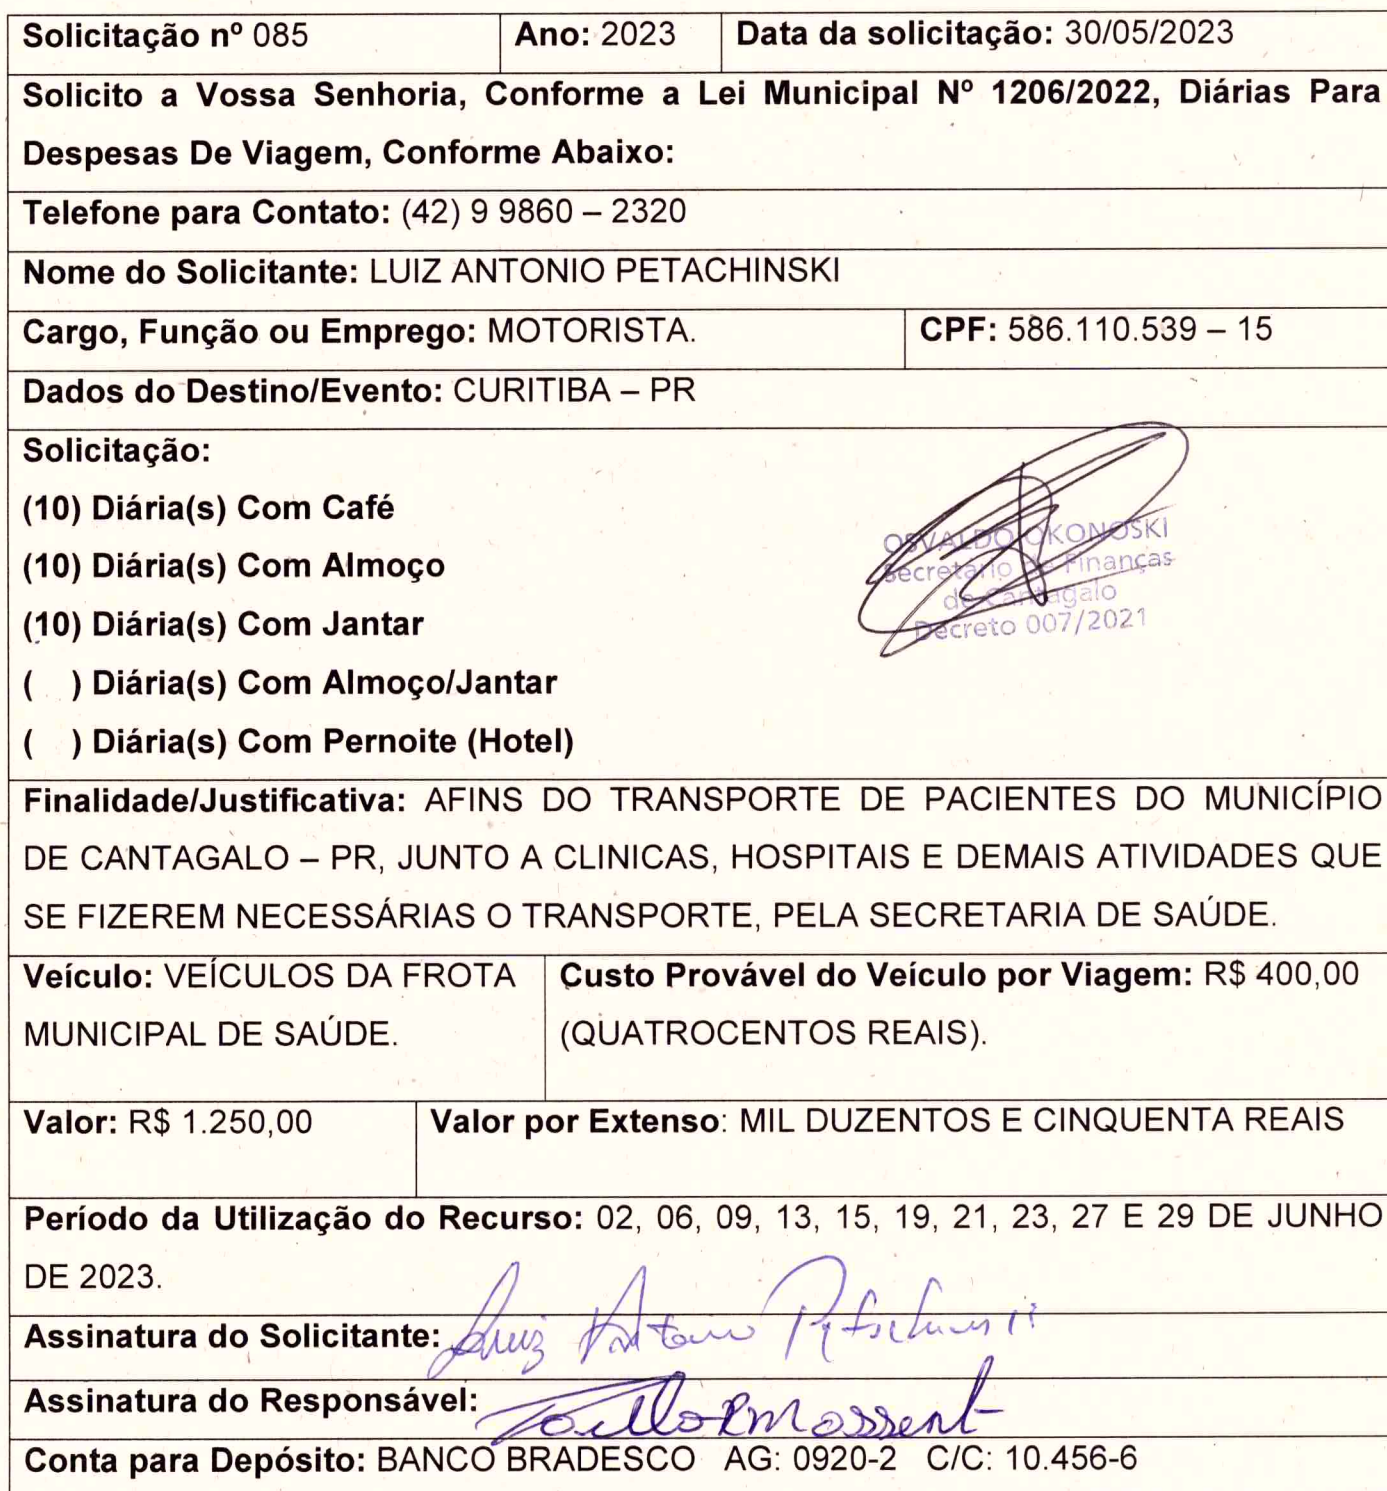 Solicitação nº 085 Ano: 2023 Data da solicitação: 30/05/2023
Solicito a Vossa Senhoria, Conforme a Lei Municipal Nº 1206/2022, Diárias Para
Despesas De Viagem, Conforme Abaixo:
Telefone para Contato: (42) 9 9860 – 2320
Nome do Solicitante: LUIZ ANTONIO PETACHINSKI
Cargo, Função ou Emprego: MOTORISTA. CPF: 586.110.539 – 15
Dados do Destino/Evento: CURITIBA – PR
Solicitação:
(10) Diária(s) Com Café
(10) Diária(s) Com Almoço
(10) Diária(s) Com Jantar
( ) Diária(s) Com Almoço/Jantar
( ) Diária(s) Com Pernoite (Hotel)
OSVALDO OKONOSKI
Secretário de Finanças
de Cantagalo
Decreto 007/2021
Finalidade/Justificativa: AFINS DO TRANSPORTE DE PACIENTES DO MUNICÍPIO
DE CANTAGALO – PR, JUNTO A CLINICAS, HOSPITAIS E DEMAIS ATIVIDADES QUE
SE FIZEREM NECESSÁRIAS O TRANSPORTE, PELA SECRETARIA DE SAÚDE.
Veículo: VEÍCULOS DA FROTA
MUNICIPAL DE SAÚDE.
Custo Provável do Veículo por Viagem: R$ 400,00
(QUATROCENTOS REAIS).
Valor: R$ 1.250,00 Valor por Extenso: MIL DUZENTOS E CINQUENTA REAIS
Período da Utilização do Recurso: 02, 06, 09, 13, 15, 19, 21, 23, 27 E 29 DE JUNHO
DE 2023.
Assinatura do Solicitante: Luiz Antonio Petachinski
Assinatura do Responsável:
Conta para Depósito: BANCO BRADESCO AG: 0920-2 C/C: 10.456-6